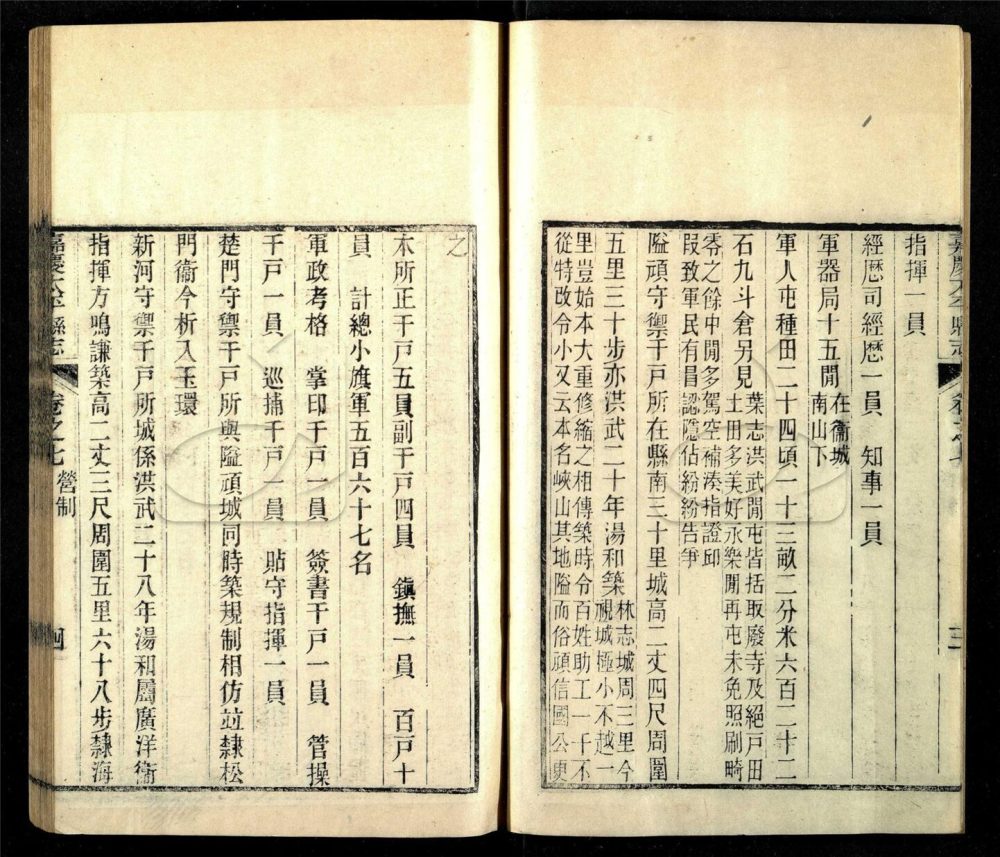 嘉慶太平縣志　卷之七　三
指揮一員
經歷司經歷一員　知事一員
軍器局十五閒在衞城
南山下
軍人屯種田二十四頃一十三畝二分米六百二十二
石九斗倉另見葉志洪武閒屯皆括取廢寺及絕戸田
土田多美好永樂閒再屯未免照刷畸
零之餘中閒多駕空補湊指證卽
叚致軍民有冒認隱佔紛紛告爭
隘頑守禦千戸所在縣南三十里城高二丈四尺周圍
五里三十步亦洪武二十年湯和築林志城周三里今
視城極小不越一
里豈始本大重修縮之相傳築時令百姓助工一千不
從特改令小又云本名峽山其地隘而俗頑信國公更
之
本所正千戸五員副千戸四員　鎮撫一員　百戸十
員　計總小旗軍五百六十七名
軍政考格　掌印千戸一員　簽書千戸一員　管操
千戸一員　巡捕千戸一員　貼守指揮一員
楚門守禦千戸所與隘頑城同時築規制相仿並隸松
門衞今析入玉環
新河守禦千戸所城係洪武二十八年湯和屬廣洋衞
指揮方鳴謙築高二丈三尺周圍五里六十八步隸海
嘉慶太平縣志　卷之七　營制　四